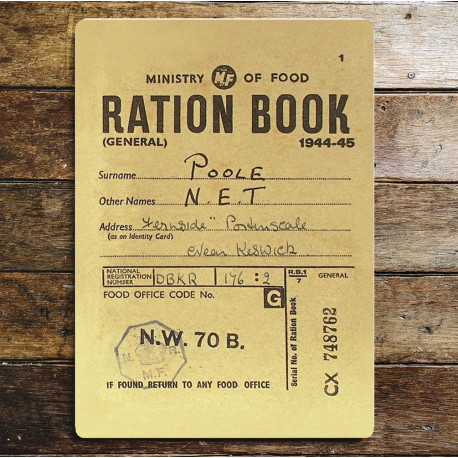 1
MINISTRY MF OF FOOD
RATION BOOK
(GENERAL) 1944-45
Surname POOLE
Other Names N.E.T
Address "Fernside" Portinscale
(as on Identity Card)
Near Keswick
NATIONAL REGISTRATION NUMBER DBKR 176 : 2
R.B.1 7 GENERAL
FOOD OFFICE CODE No. G
N.W. 70 B.
N. R.
M.F.
IF FOUND RETURN TO ANY FOOD OFFICE
Serial No. of Ration Book
CX 748762